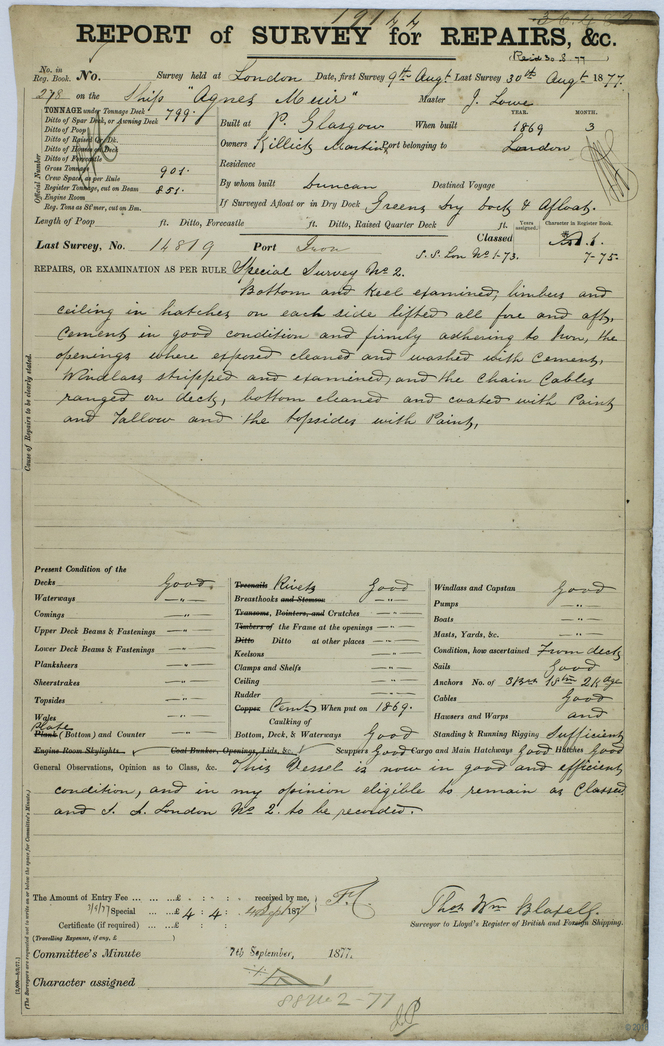 19144
REPORT of SURVEY for REPAIRS, &c.
No. in Reg. Book.
No. Survey held at London Date, first Survey 9th Augt Last Survey 30th Augt 1877
278 on the Ship "Agnes Muir" Master J. Lowe
TONNAGE under Tonnage Deck 799.
Ditto of Spar Deck, or Awning Deck
Ditto of Poop
Ditto of Raised Qr. Dk.
Ditto of Houses on Deck
Ditto of Forecastle
Gross Tonnage 901.
Crew Space, as per Rule
Register Tonnage, cut on Beam 851.
Engine Room
Reg. Tons as St'mer, cut on Bm.
Official Number
Built at P. Glasgow When built YEAR. 1869 MONTH. 3
Owners Killick Martin Port belonging to London
Residence
By whom built Duncan Destined Voyage
If Surveyed Afloat or in Dry Dock Greens Dry Dock & Afloat.
Length of Poop ft. Ditto, Forecastle ft. Ditto, Raised Quarter Deck ft.
Years assigned. Character in Register Book.
Last Survey, No. 14819 Port Iron Classed
S.S. Lon No 1-73. 7-75.
REPAIRS, OR EXAMINATION AS PER RULE Special Survey No 2.
Bottom and Keel examined, limbers and
ceiling in hatches on each side lifted all fore and aft,
Cement in good condition and firmly adhering to Iron, the
openings where exposed cleaned and washed with Cement,
Windlass stripped and examined, and the Chain Cables
ranged on deck, bottom cleaned and coated with Paint
and Tallow and the topsides with Paint,
Cause of Repairs to be clearly stated.
Present Condition of the
Decks Good.
Waterways "
Comings "
Upper Deck Beams & Fastenings "
Lower Deck Beams & Fastenings "
Planksheers "
Sheerstrakes "
Topsides "
Wales "
Plate
Plank (Bottom) and Counter "
Treenails Rivets Good
Breasthooks and Stemson "
Transoms, Pointers, and Crutches "
Timbers of the Frame at the openings "
Ditto Ditto at other places "
Keelsons "
Clamps and Shelfs "
Ceiling "
Rudder "
Copper Cemt When put on 1869.
Caulking of
Bottom, Deck, & Waterways Good
Windlass and Capstan Good
Pumps "
Boats "
Masts, Yards, &c. "
Condition, how ascertained From deck
Sails Good
Anchors No. of
Cables Good
Hawsers and Warps and
Standing & Running Rigging Sufficient
Engine Room Skylights Coal Bunker, Openings, Lids, &c. Scuppers Good Cargo and Main Hatchways Good Hatches Good
General Observations, Opinion as to Class, &c. This Vessel is now in good and efficient
condition, and in my opinion eligible to remain as Classed
and S. S. London No 2. to be recorded.
The Amount of Entry Fee ... ... £ : : received by me,
Special ... £ 4 : 4 :
Certificate (if required) ... £ : :
(Travelling Expenses, if any, £ )
Thos Wm Blabell.
Surveyor to Lloyd's Register of British and Foreign Shipping.
Committee's Minute 7th September, 1877.
Character assigned
SS No 2-77
(The Surveyors are requested not to write on or below the space for Committee's Minute.)